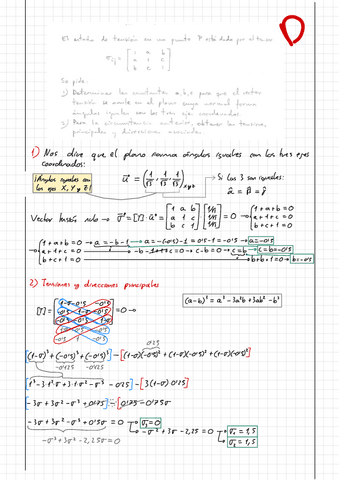 El estado de tensión en un punto P está dado por el tensor
σij = [ 1 a b
a 1 c
b c 1 ]
Se pide:
1) Determinar las constantes a, b, c para que el vector
tensión se anule en el plano cuya normal forma
ángulos iguales con los tres ejes coordenados.
2) Para la circunstancia anterior, obtener las tensiones
principales y direcciones asociadas.
1) Nos dice que el plano forma ángulos iguales con los tres ejes
coordenados:
¡Ángulos iguales con
los ejes X, Y y Z!
u⃗ = (1/√3, 1/√3, 1/√3)xyz
Si los 3 son iguales:
α̂ = β̂ = γ̂
Vector tensión nulo → σ⃗ = [T]·u⃗ = [ 1 a b
a 1 c
b c 1 ] [ 1/√3
1/√3
1/√3 ] = 0 → { 1+a+b=0
a+1+c=0
b+c+1=0
{ 1+a+b=0 → a=-b-1 → a=-(-0'5)-1=0'5-1=-0'5 → a=-0'5
a+1+c=0 → -b-1+1+c=0 → c-b=0 → c=b → c=-0'5
b+c+1=0 → b+b+1=0 → b=-0'5
2) Tensiones y direcciones principales
[T] = [ 1-σ -0'5 -0'5
-0'5 1-σ -0'5
-0'5 -0'5 1-σ ] = 0 →
1-σ -0'5 -0'5
-0'5 1-σ -0'5
(a-b)³ = a³-3a²b+3ab²-b³
0'25
[(1-σ)³+(-0'5)³+(-0'5)³] - [(1-σ)(-0'5)²+(1-σ)(-0'5)²+(1-σ)(-0'5)²]
-0'125 -0'125
[1³-3·1²σ+3·1·σ²-σ³-0'25] - [3(1-σ)·0'25]
[-3σ+3σ²-σ³+0'75] - [0'75-0'75σ]
-3σ+3σ²-σ³+0'75σ=0 → σ₁=0
-σ²+3σ-2,25=0 → σ₂=1,5
σ₃=1,5
-σ³+3σ²-2,25σ=0